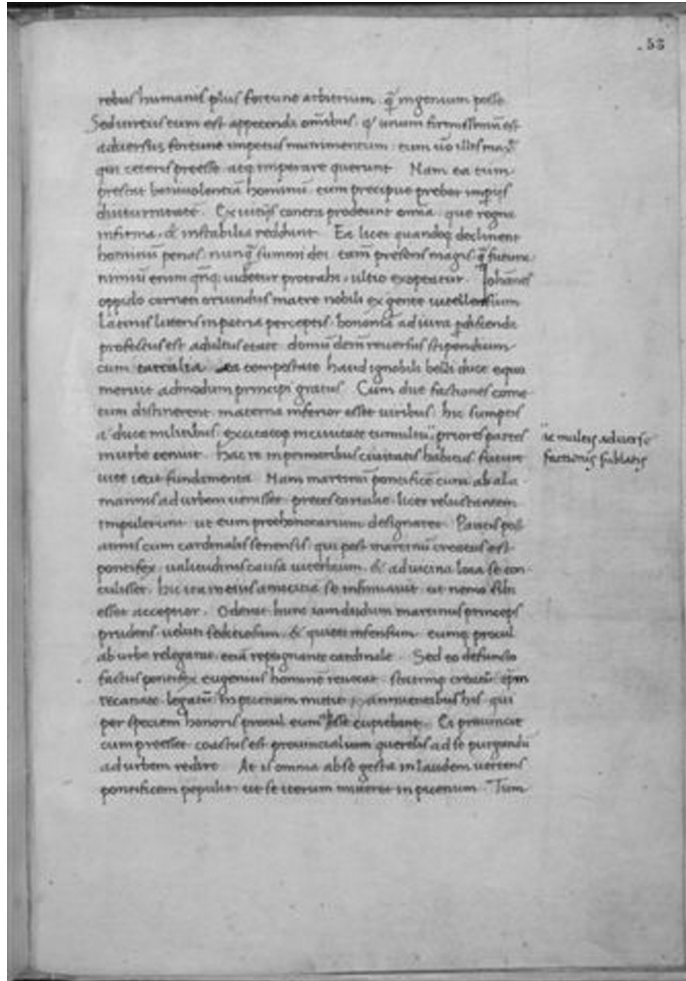 53
rebus humanis plus fortune arbitrium . q̃ ingenium posse
Sed virtus cum est appetenda om̃ibus . q' unum firmissimũ est
adversus fortune impetus munimentum . tum ũo illis
qui ceteris preesse atq imperare querunt . Nam ea tum
prestat benivolentiã hominũ . tum precipue prebet imperijs
diuturnitatẽ . Ex vitijs contra prodeunt om̃ia . que regna
infirma . & instabilia reddunt . Ea licet quandoq declinent
hominũ penas . nunq̃ summi dei . tam presens magis q̃ future
nimiũ enim videtur protrahi . ultio expetatur . Johãnes
oppido corneti oriundus matre nobili ex gente vitellensium
latinis litteris in patria perceptis . bononiã ad iura pdiscenda
profectus est . adultus etate domũ reversus stipendium
cum tartalia ea tempestate haud ignobili belli duce equo
meruit admodum principi gratus . Cum due factiones corne
tum distinerent . materna inferior esset viribus . hic sumptis
a duce militibus . excitatoq in civitate tumultu priores partes
in urbe tenuit . Hac re in permotibus civitatis habitus future
vite iecit fundamenta . Nam martinũ pontificẽ cum ab ala
mannis ad urbem venisset . preces tartalie . licet reluctantem
impulerunt . ut eum prothonotarium designaret . Paucis post
annis cum cardinalis senensis . qui post martinũ creatus est
pontifex . valitudinis causa viterbium . & ad vicina loca se con
tulisset . hic ita in eius amicitiã se insinuavit . ut nemo sibi
esset acceptior . Oderat hunc iamdudum martinus princeps
prudens . veluti seditiosum . & quieti infensum . eumq procul
ab urbe relegarat . etiã repugnante cardinale . Sed eo defuncto
factus pontifex eugenius hominẽ revocat . statimq creatũ ep̃m
recanatẽ . legatũ in picenum mittit annitentibus his . qui
per speciem honoris procul eum esse cupiebant . Ei provincie
cum preesset . coactus est provincialium querelis ad se purgandũ
ad urbem redire . At is omnia ab se gesta in laudem vertens
pontificem pepulit . ut se iterum mitteret in picenum . Tum
ac multis adverse
factionis sublatis